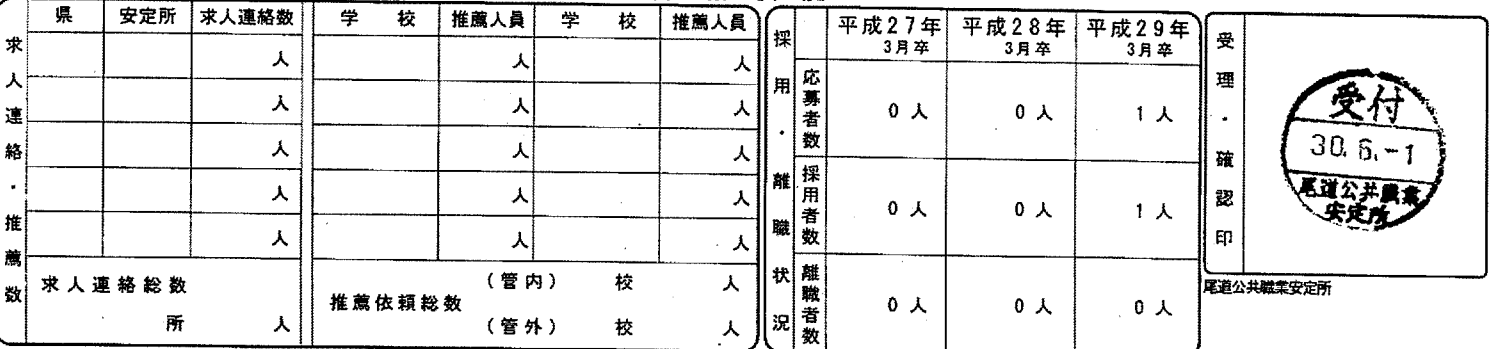 求人連絡・推薦数
県 安定所 求人連絡数 学校 推薦人員 学校 推薦人員
人 人 人
人 人 人
人 人 人
人 人 人
人 人 人
求人連絡総数
所 人
推薦依頼総数
(管内) 校 人
(管外) 校 人
採用・離職状況
平成27年3月卒 平成28年3月卒 平成29年3月卒
応募者数 0人 0人 1人
採用者数 0人 0人 1人
離職者数 0人 0人 0人
受理・確認印
受付
30.6.-1
尾道公共職業
安定所
尾道公共職業安定所